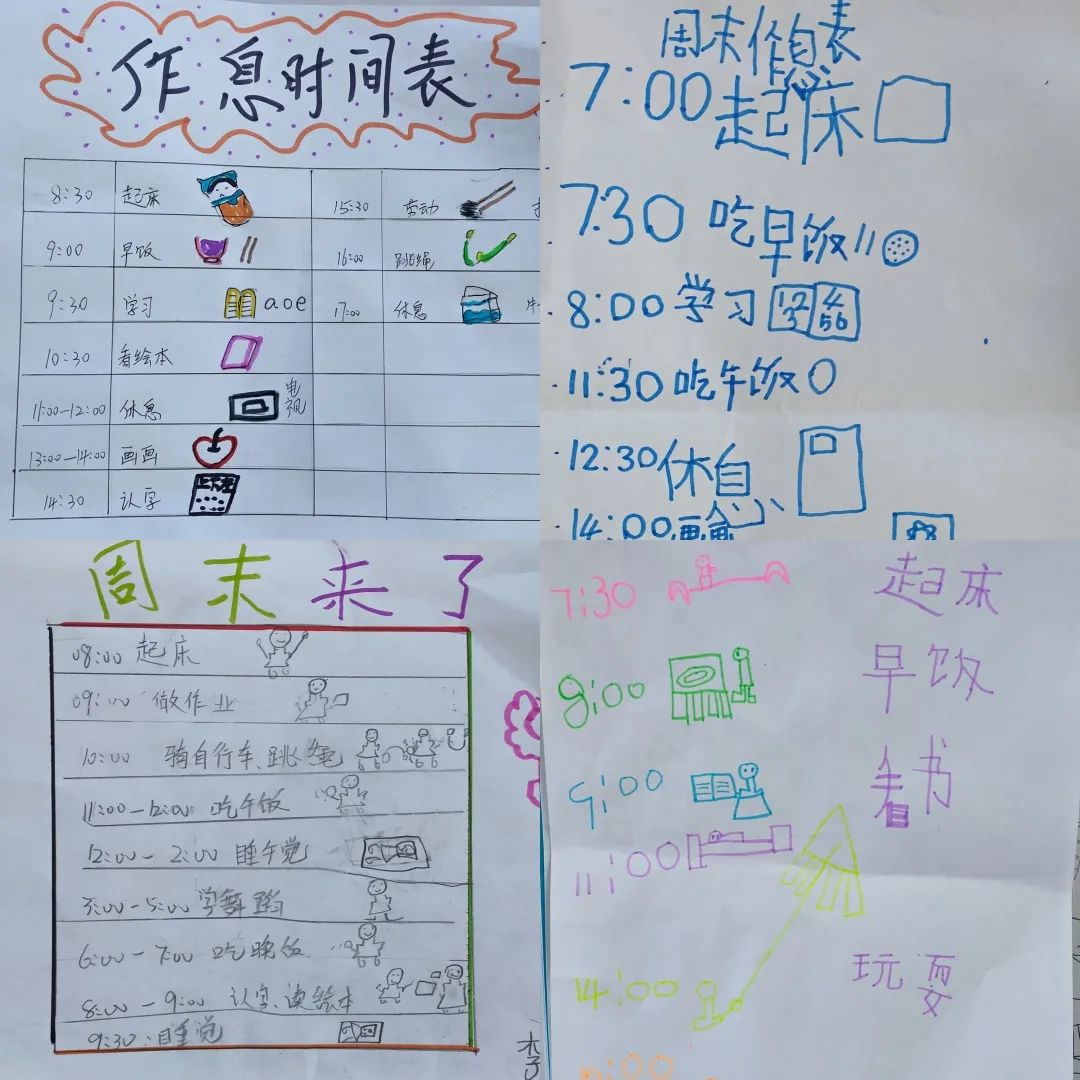 作息时间表
8:30 起床 15:30 劳动
9:00 早饭 16:00 跳绳
9:30 学习 aoe 17:00 休息
10:30 看绘本
11:00—12:00 休息 电视
13:00—14:00 画画
14:30 认字
周末作息表
7:00 起床
7:30 吃早饭
8:00 学习 12 3 4 56
11:30 吃午饭
12:30 休息
14:00 画画
周末来了
08:00 起床
09:00 做作业
10:00 骑自行车、跳绳
11:00—12:00 吃午饭
12:00—2:00 睡午觉
3:00—5:00 学舞蹈
6:00—7:00 吃晚饭
8:00—9:00 认字、读绘本
9:30 睡觉
7:30 起床
8:00 早饭
9:00 看书
11:00
14:00 玩耍